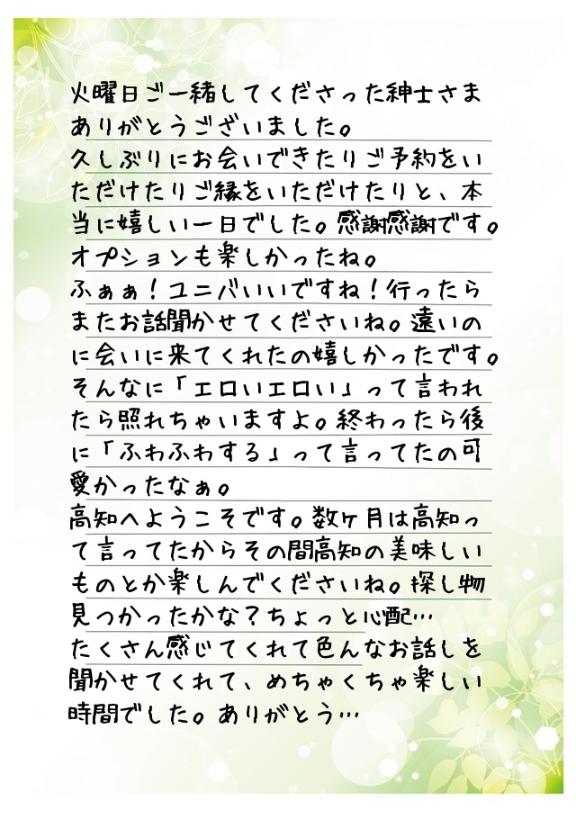 火曜日ご一緒してくださった紳士さま
ありがとうございました。
久しぶりにお会いできたりご予約をい
ただけたりご縁をいただけたりと、本
当に嬉しい一日でした。感謝感謝です。
オプションも楽しかったね。
ふぁぁ！ユニバいいですね！行ったら
またお話聞かせてくださいね。遠いの
に会いに来てくれたの嬉しかったです。
そんなに「エロいエロい」って言われ
たら照れちゃいますよ。終わったら後
に「ふわふわする」って言ってたの可
愛かったなぁ。
高知へようこそです。数ヶ月は高知っ
て言ってたからその間高知の美味しい
ものとか楽しんでくださいね。探し物
見つかったかな？ちょっと心配…
たくさん感じてくれて色んなお話しを
聞かせてくれて、めちゃくちゃ楽しい
時間でした。ありがとう…